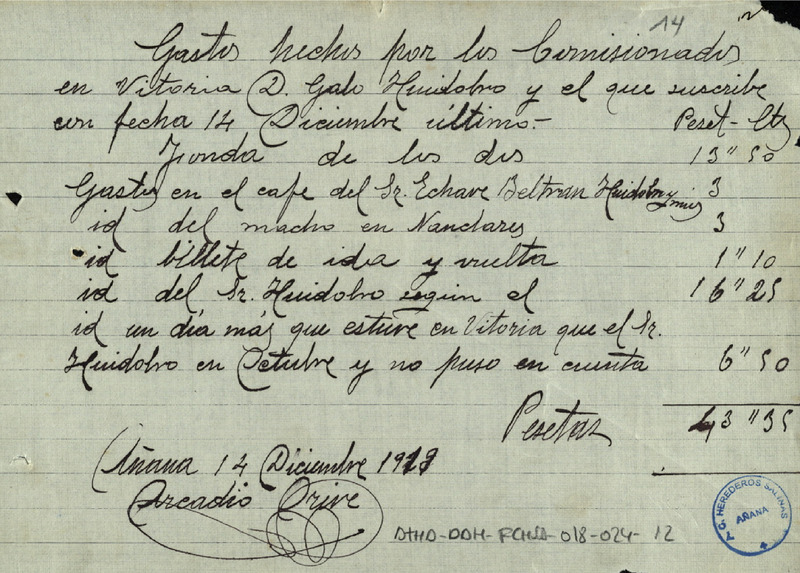 14
Gastos hechos por los Comisionados
en Vitoria D. Galo Huidobro y el que suscribe
con fecha 14 Diciembre último.- Peset - Cts
Fonda de los dos 13"50
Gastos en el cafe del Sr. Echave Beltran Huidobro y mio 3
id del macho en Nanclares 3
id billete de idea y vuelta 1"10
id del Sr. Huidobro segun el 16"25
id un día más que estuve en Vitoria que el Sr.
Huidobro en Octubre y no puso en cuenta 6"50
Pesetas 43"35
Añana 14 Diciembre 19
Arcadio Orive
ATHA-DDH-FCHSA-018-024-12
C. HEREDEROS SALINAS
AÑANA